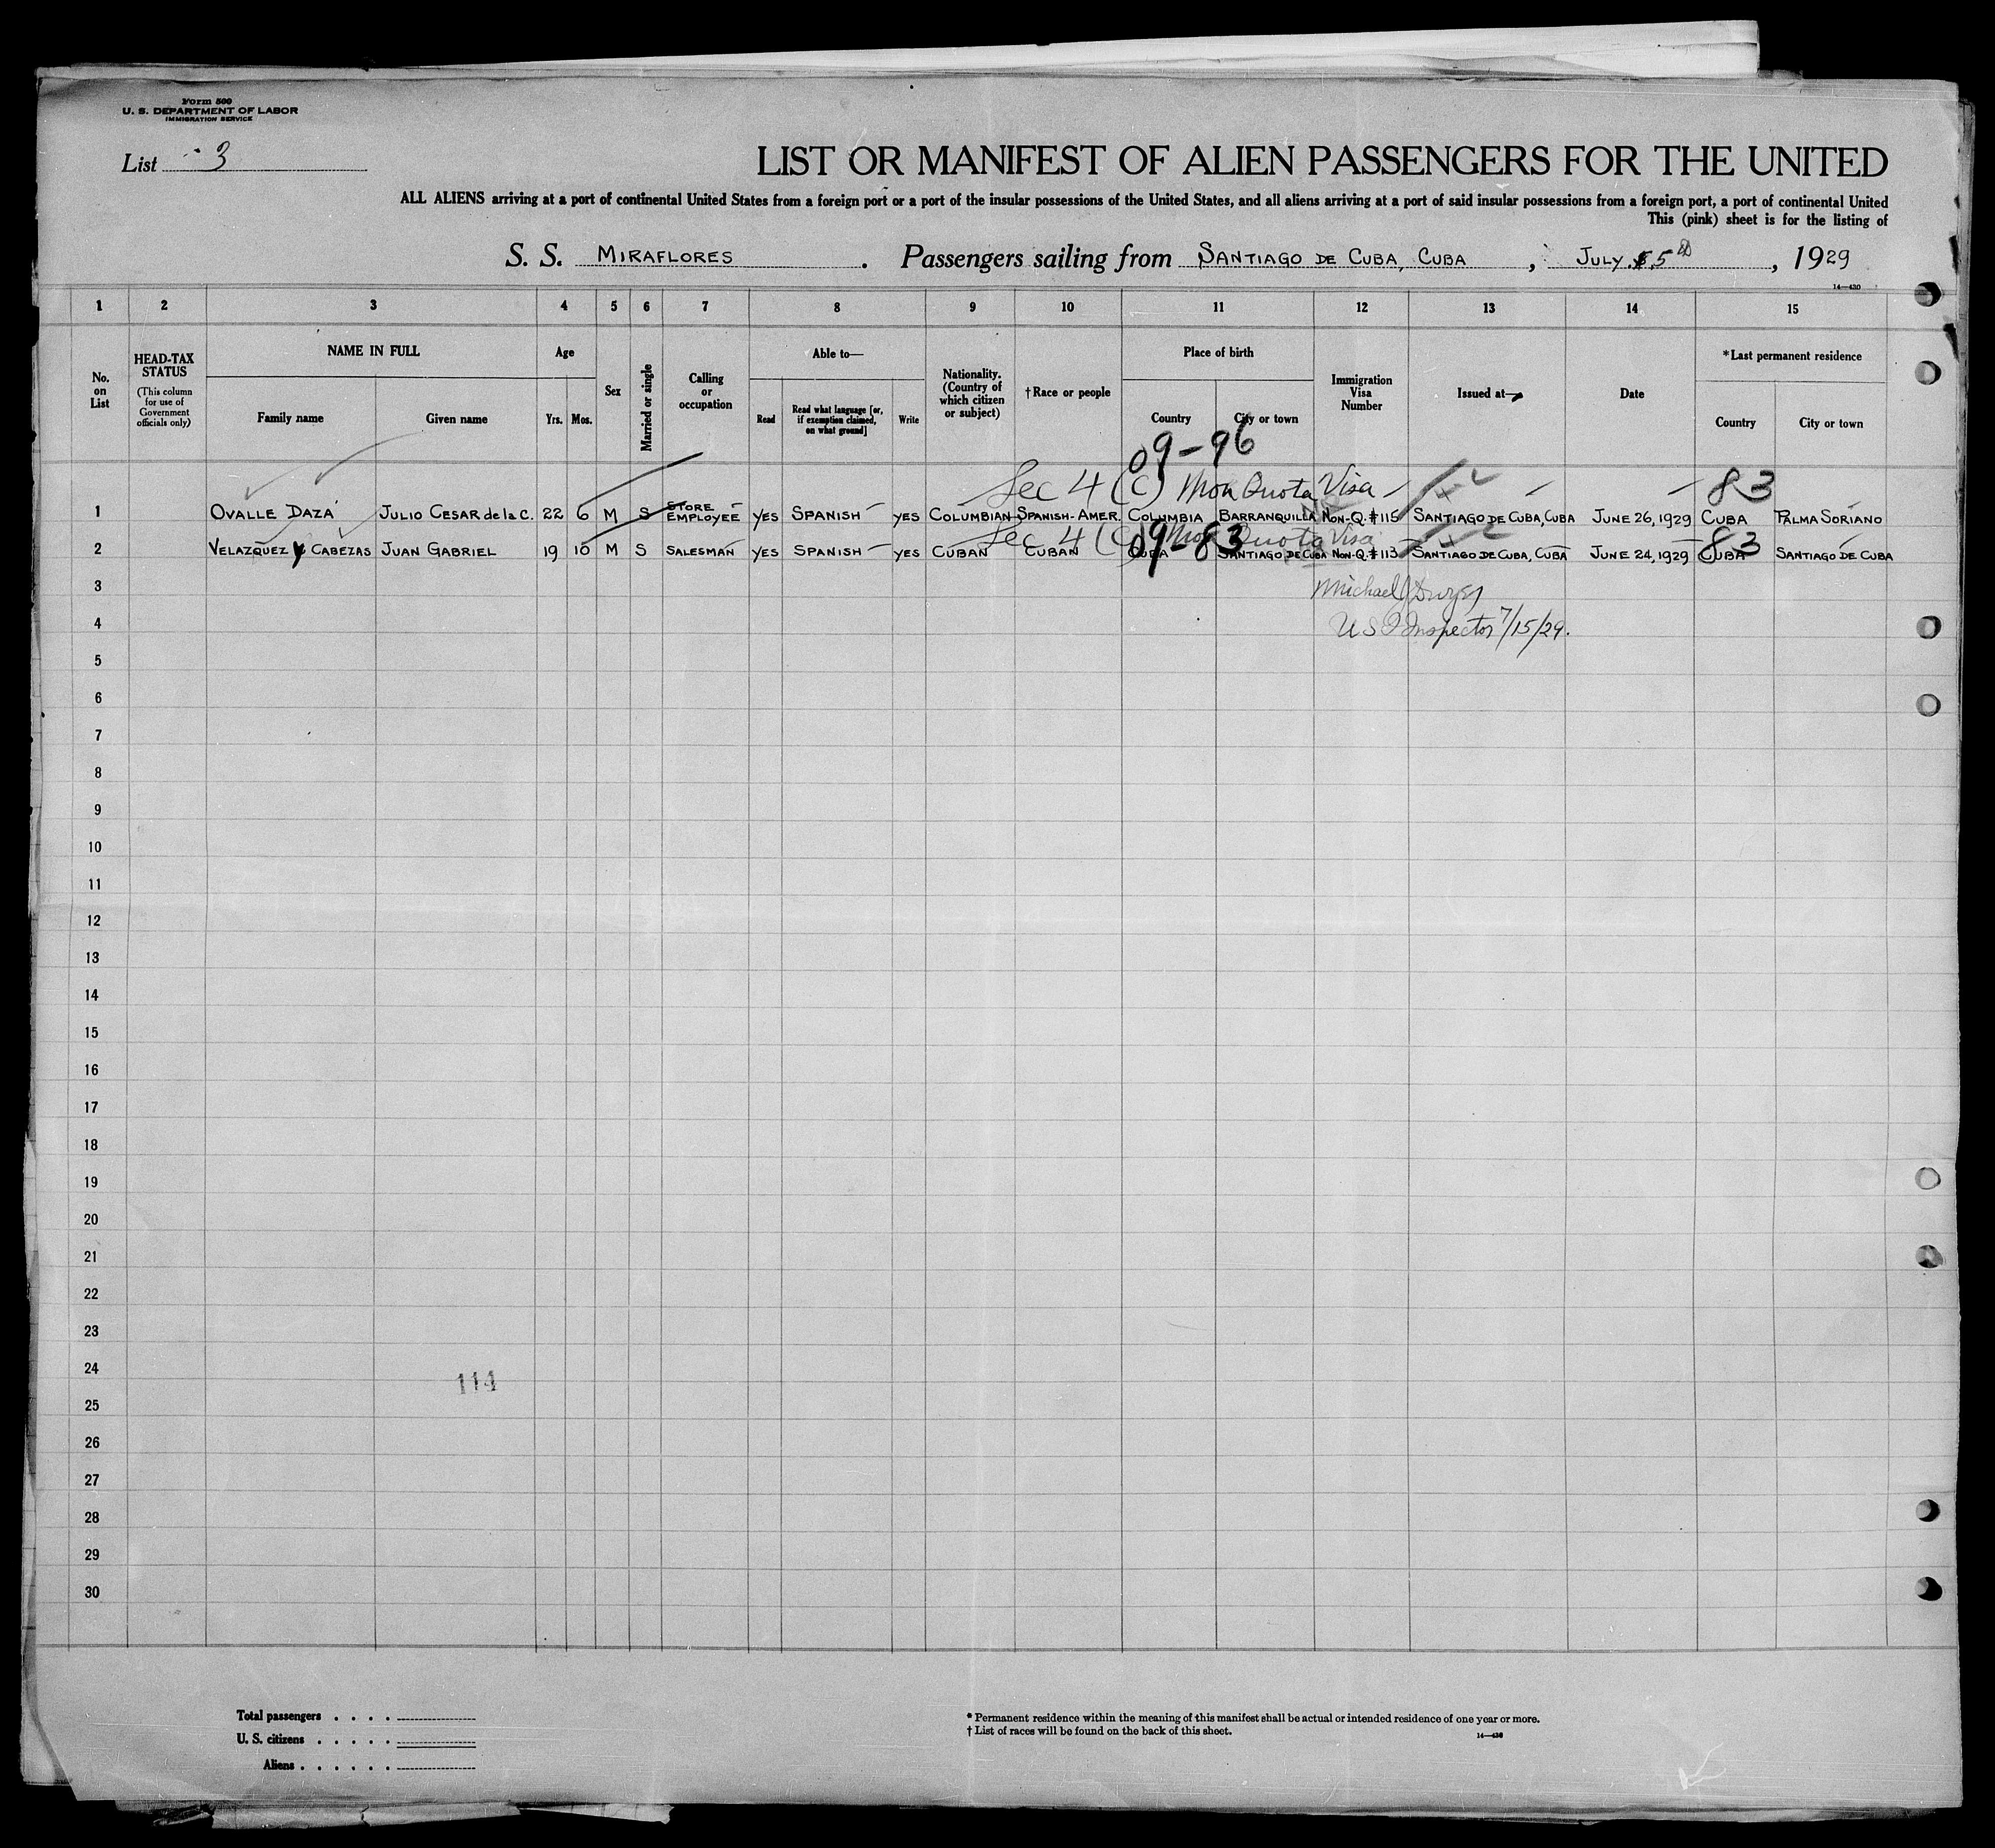 Form 500
U. S. DEPARTMENT OF LABOR
IMMIGRATION SERVICE
List 3
LIST OR MANIFEST OF ALIEN PASSENGERS FOR THE UNITED
ALL ALIENS arriving at a port of continental United States from a foreign port or a port of the insular possessions of the United States, and all aliens arriving at a port of said insular possessions from a foreign port, a port of continental United
This (pink) sheet is for the listing of
S. S. MIRAFLORES. Passengers sailing from SANTIAGO DE CUBA, CUBA, JULY 5th, 1929
14—430
1 2 3 4 5 6 7 8 9 10 11 12 13 14 15
No. on List
HEAD-TAX STATUS
(This column for use of Government officials only)
NAME IN FULL
Family name Given name
Age
Yrs. Mos.
Sex
Married or single
Calling or occupation
Able to—
Read Read what language [or, if exemption claimed, on what ground] Write
Nationality. (Country of which citizen or subject)
†Race or people
Place of birth
Country City or town
Immigration Visa Number
Issued at—
Date
*Last permanent residence
Country City or town
09-96
Sec 4 (C) Non Quota Visa 83
1 OVALLE DAZA JULIO CESAR de la C. 22 6 M S STORE EMPLOYEE YES SPANISH YES COLUMBIAN SPANISH-AMER. COLUMBIA BARRANQUILLA NON-Q. #115 SANTIAGO DE CUBA, CUBA JUNE 26, 1929 CUBA PALMA SORIANO
Sec 4 (C) Non Quota Visa
09-83 83
2 VELAZQUEZ y CABEZAS JUAN GABRIEL 19 10 M S SALESMAN YES SPANISH YES CUBAN CUBAN CUBA SANTIAGO DE CUBA NON-Q. #113 SANTIAGO DE CUBA, CUBA JUNE 24, 1929 CUBA SANTIAGO DE CUBA
3
Michael J Dwyer
4
U S I Inspector 7/15/29.
5
6
7
8
9
10
11
12
13
14
15
16
17
18
19
20
21
22
23
24
114
25
26
27
28
29
30
Total passengers . . . .
U. S. citizens . . . . .
Aliens . . . . . .
* Permanent residence within the meaning of this manifest shall be actual or intended residence of one year or more.
† List of races will be found on the back of this sheet.
14—430